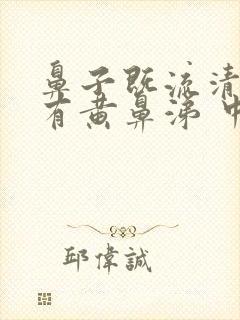 鼻子既流清
有黄鼻涕 中
邱偉誠